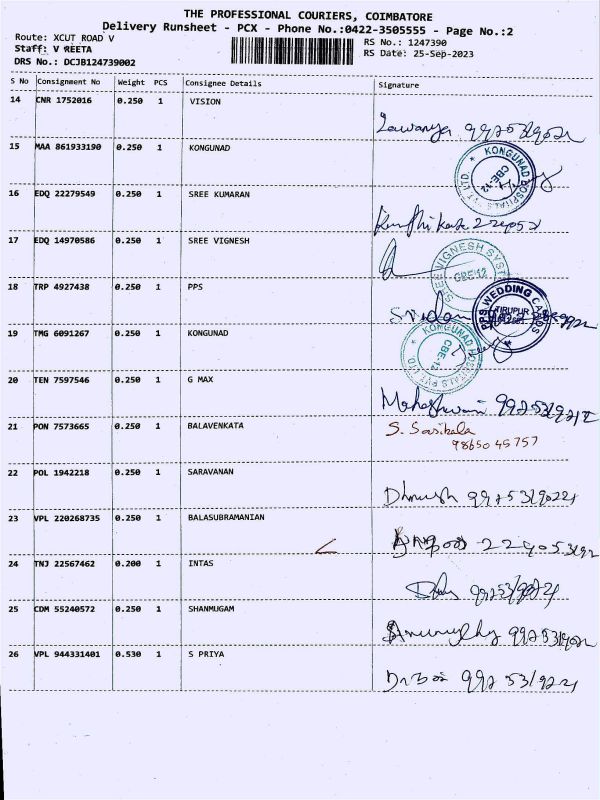 THE PROFESSIONAL COURIERS, COIMBATORE
Delivery Runsheet - PCX - Phone No.:0422-3505555 - Page No.:2
Route: XCUT ROAD V
RS No.: 1247390
Staff: V REETA
RS Date: 25-Sep-2023
DRS No.: DCJB124739002
S No Consignment No Weight PCS Consignee Details Signature
14 CNR 1752016 0.250 1 VISION
15 MAA 861933190 0.250 1 KONGUNAD
KONGUNAD HOSPITALS PVT LTD. CBE-12
16 EDQ 22279549 0.250 1 SREE KUMARAN
17 EDQ 14970586 0.250 1 SREE VIGNESH
SREE VIGNESH SYST CBE-12
18 TRP 4927438 0.250 1 PPS
PPS WEDDING CARDS TIRUPUR
19 TMG 6091267 0.250 1 KONGUNAD
KONGUNAD HOSPITALS PVT LTD. CBE-12
20 TEN 7597546 0.250 1 G MAX
21 PON 7573665 0.250 1 BALAVENKATA
S. Sasikala
98650 45757
22 POL 1942218 0.250 1 SARAVANAN
23 VPL 220268735 0.250 1 BALASUBRAMANIAN
24 TNJ 22567462 0.200 1 INTAS
25 CDM 55240572 0.250 1 SHANMUGAM
26 VPL 944331401 0.530 1 S PRIYA